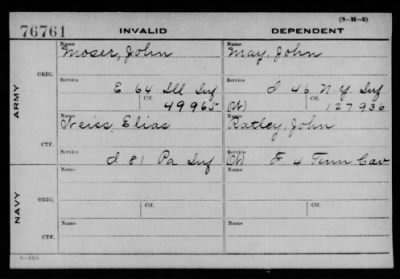 (3-M-3)
76761 INVALID DEPENDENT
ARMY
NAVY
ORIG.
CTF.
ORIG.
CTF.
Name Name
Moser, John May, John
Service Service
E 64 Ill Inf I 46 N.Y. Inf
Ctf. Ctf.
49965 (W) 127936
Name Name
Neiss, Elias Ratley, John
Service Service
I 81 Pa Inf (W) F 4 Tenn Cav
Name Name
Ctf. Ctf.
Name Name